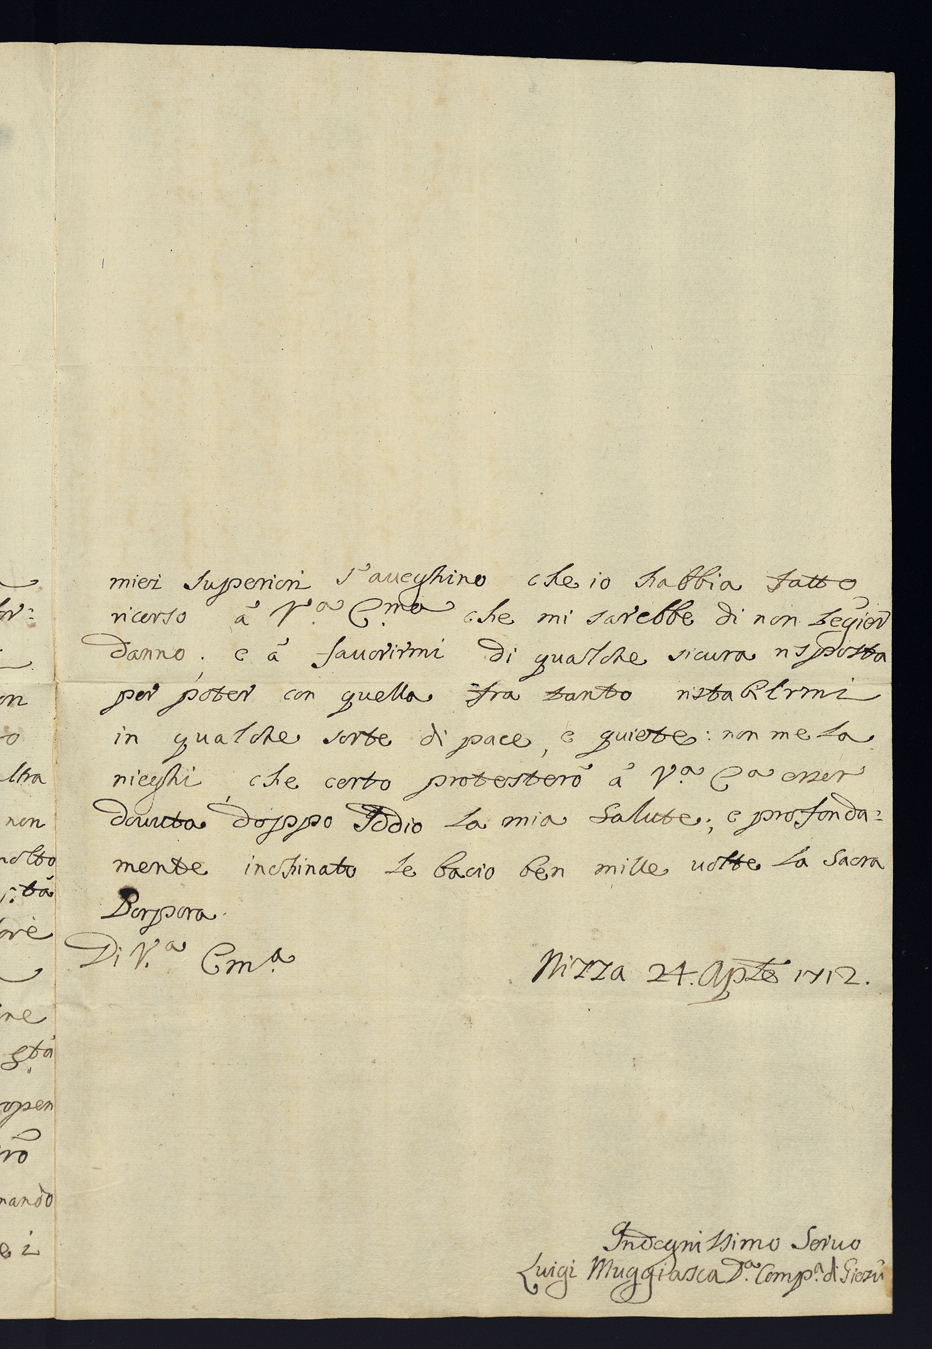 miei Superiori s'aueghino che io habbia fatto
ricorso à V.ª Em.ª che mi sarebbe di non legier
danno. e à fauorirmi di qualche sicura risposta
per poter con quella fra tanto ristabilirmi
in qualche sorte di pace, e quiete: non me la
nieghi, che certo protesterò à V.ª E.ª esser
douuta doppo Iddio la mia Salute; e profonda=
mente inchinato le bacio ben mille uolte la Sacra
Porpora.
Di V.ª Em.ª
Nizza 24. Aple 1712.
Indegnissimo Seruo
Luigi Muggiasca D.ª Comp.ª di Giesù
or=
on
o
ltra
non
molto
tà
ore
ne
S.tà
open
rò
mando
e i